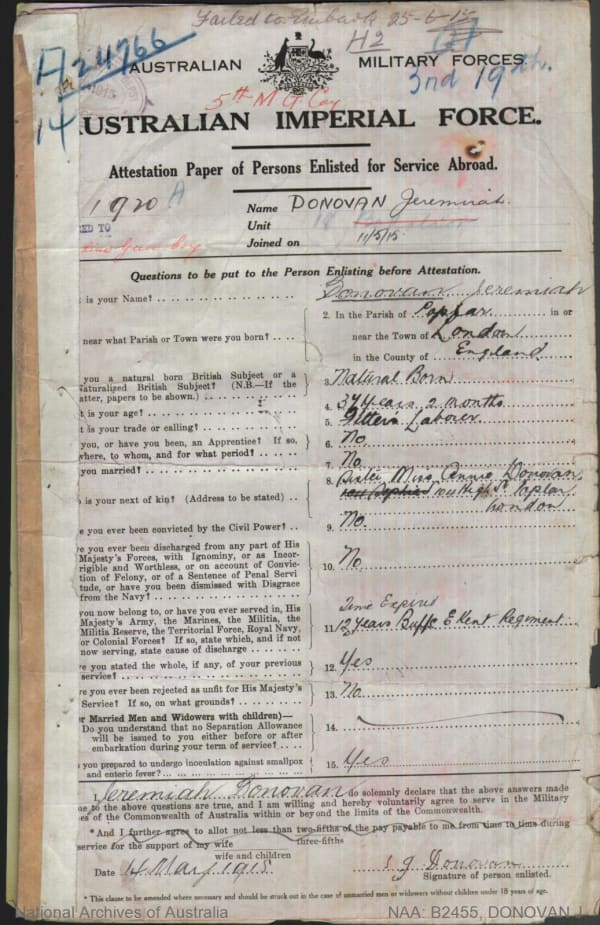 Failed to Embark 25-6-15
H2
A 24766
14
AUSTRALIAN MILITARY FORCES.
2nd 19th.
5th M G Coy
AUSTRALIAN IMPERIAL FORCE.
Attestation Paper of Persons Enlisted for Service Abroad.
1920 A
Name DONOVAN Jeremiah.
ED TO
Unit
Gun Coy
Joined on 11/5/15.
Questions to be put to the Person Enlisting before Attestation.
is your Name? Donovan Jeremiah
2. In the Parish of Poplar in or
near what Parish or Town were you born? near the Town of London
in the County of England
you a natural born British Subject or a
Naturalized British Subject? (N.B.—If the 3. Natural Born
atter, papers to be shown.)
t is your age? 4. 37 years 2 months
t is your trade or calling? 5. Fitter's Laborer
you, or have you been, an Apprentice? If so, 6. No
where, to whom, and for what period?
you married? 7. No.
8. Sister Miss Annie Donovan
is your next of kin? (Address to be stated) High St Poplar
London
e you ever been convicted by the Civil Power? 9. No.
e you ever been discharged from any part of His
Majesty's Forces, with Ignominy, or as Incor-
rigible and Worthless, or on account of Convic- 10. No
tion of Felony, or of a Sentence of Penal Servi
tude, or have you been dismissed with Disgrace
from the Navy?
you now belong to, or have you ever served in, His Time Expired
Majesty's Army, the Marines, the Militia, the
Militia Reserve, the Territorial Force, Royal Navy, 11. 12 years Buffs E Kent Regiment
or Colonial Forces? If so, state which, and if not
now serving, state cause of discharge
e you stated the whole, if any, of your previous 12. Yes
service?
e you ever been rejected as unfit for His Majesty's 13. No
Service? If so, on what grounds?
r Married Men and Widowers with children)—
Do you understand that no Separation Allowance 14.
will be issued to you either before or after
embarkation during your term of service?
you prepared to undergo inoculation against smallpox 15. Yes
and enteric fever?
I, Jeremiah Donovan do solemnly declare that the above answers made
me to the above questions are true, and I am willing and hereby voluntarily agree to serve in the Military
es of the Commonwealth of Australia within or beyond the limits of the Commonwealth.
*And I further agree to allot not less than two-fifths of the pay payable to me from time to time during
three-fifths
service for the support of my wife
wife and children
Date 4 May 1915 J Donovan
Signature of person enlisted.
* This clause to be amended where necessary and should be struck out in the case of unmarried men or widowers without children under 18 years of age.
National Archives of Australia NAA: B2455, DONOVAN J